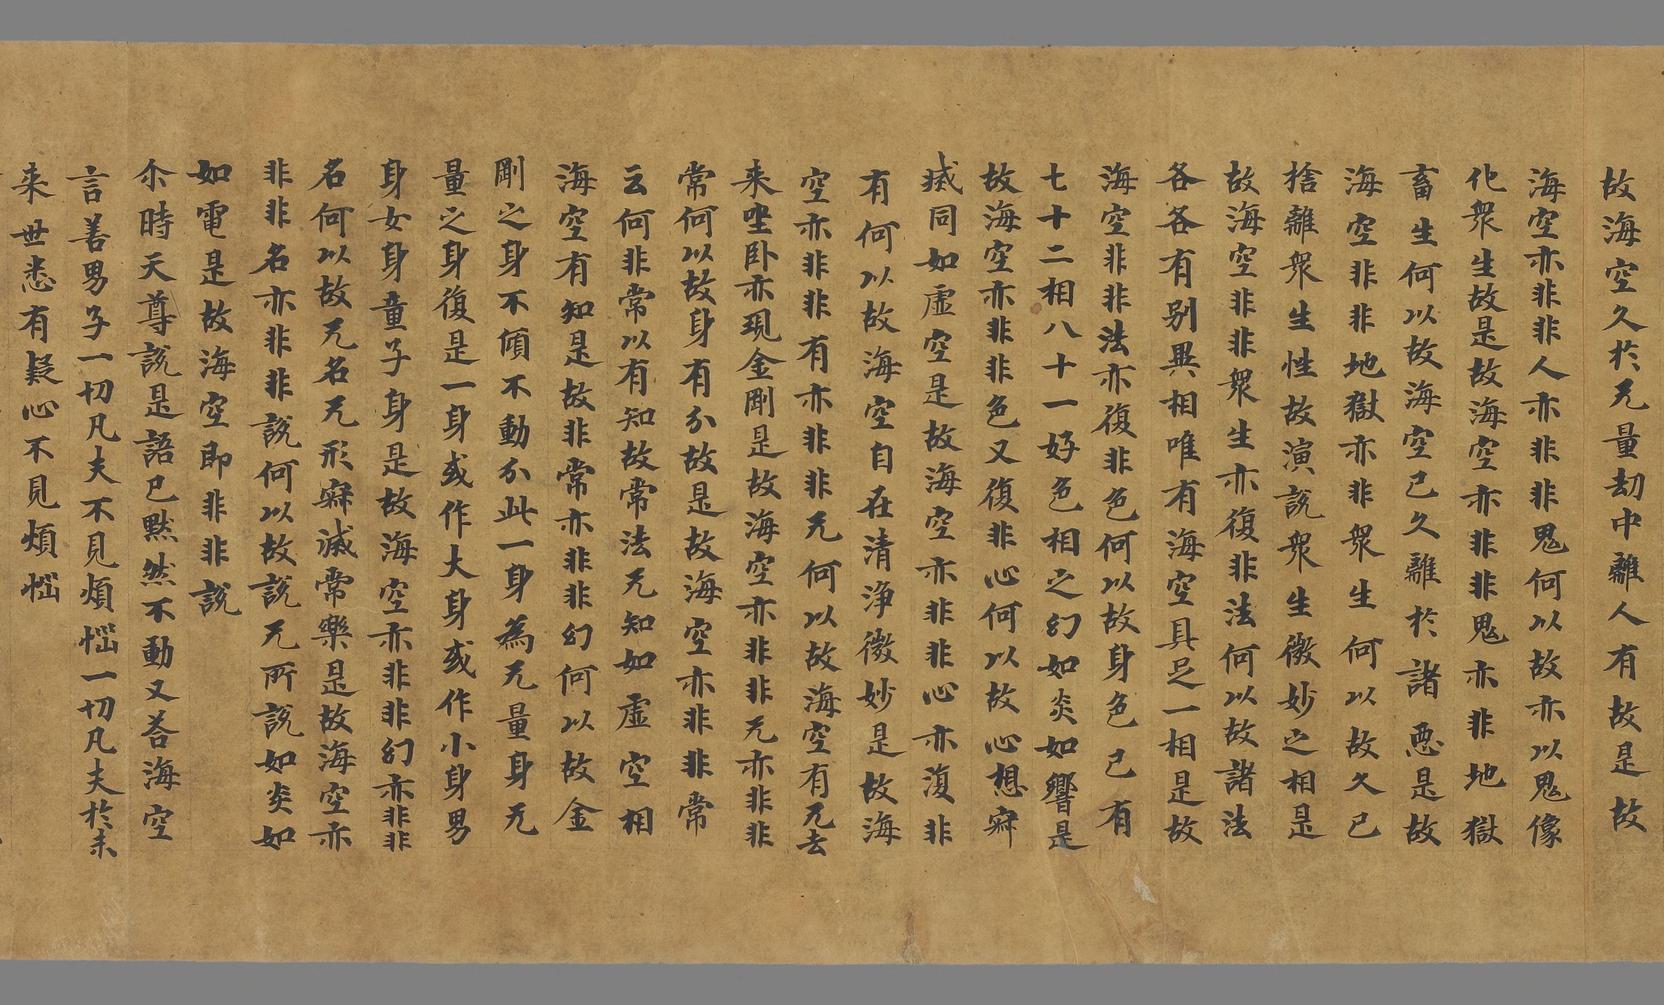 故海空久扵无量劫中離人有故是故
海空亦非非人亦非非鬼何以故亦以鬼像
化衆生故是故海空亦非非鬼亦非地獄
畜生何以故海空已久離扵諸惡是故
海空非非地獄亦非衆生何以故久已
捨離衆生性故演說衆生微妙之相是
故海空非非衆生亦復非法何以故諸法
各各有别異相唯有海空具足一相是故
海空非非法亦復非色何以故身色已有
七十二相八十一好色相之幻如炎如響是
故海空亦非非色又復非心何以故心想寂
滅同如虛空是故海空亦非非心亦復非
有何以故海空自在清淨微妙是故海
空亦非非有亦非非无何以故海空有无去
来坐卧亦現金剛是故海空亦非非无亦非非
常何以故身有分故是故海空亦非非常
云何非常以有知故常法无知如虛空相
海空有知是故非常亦非非幻何以故金
剛之身不傾不動分此一身為无量身无
量之身復是一身或作大身或作小身男
身女身童子身是故海空亦非非幻亦非非
名何以故无名无形寂滅常樂是故海空亦
非非名亦非非說何以故說无所說如炎如
如電是故海空即非非說
尒時天尊說是語已默然不動又荅海空
言善男子一切凡夫不見煩惱一切凡夫扵未
来世悉有疑心不見煩惱